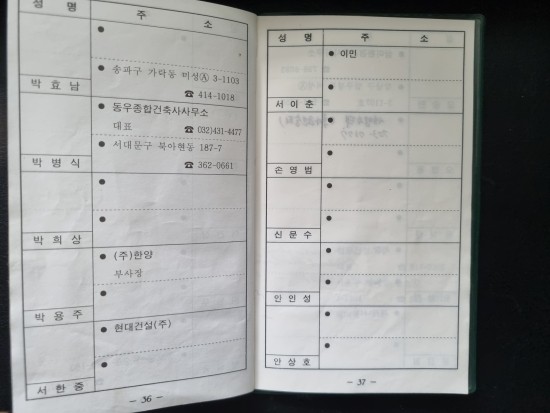 성 명 주 소
송파구 가락동 미성Ⓐ 3-1103
박 효 남 ☎ 414-1018
동우종합건축사사무소
대표 ☎ 032)431-4477
서대문구 북아현동 187-7
박 병 식 ☎ 362-0661
박 희 상
(주)한양
부사장
박 용 주
현대건설(주)
서 한 중
- 36 -
성 명 주 소
이민
서 이 춘
손 명 범
신 문 수
인 인 성
안 상 호
- 37 -